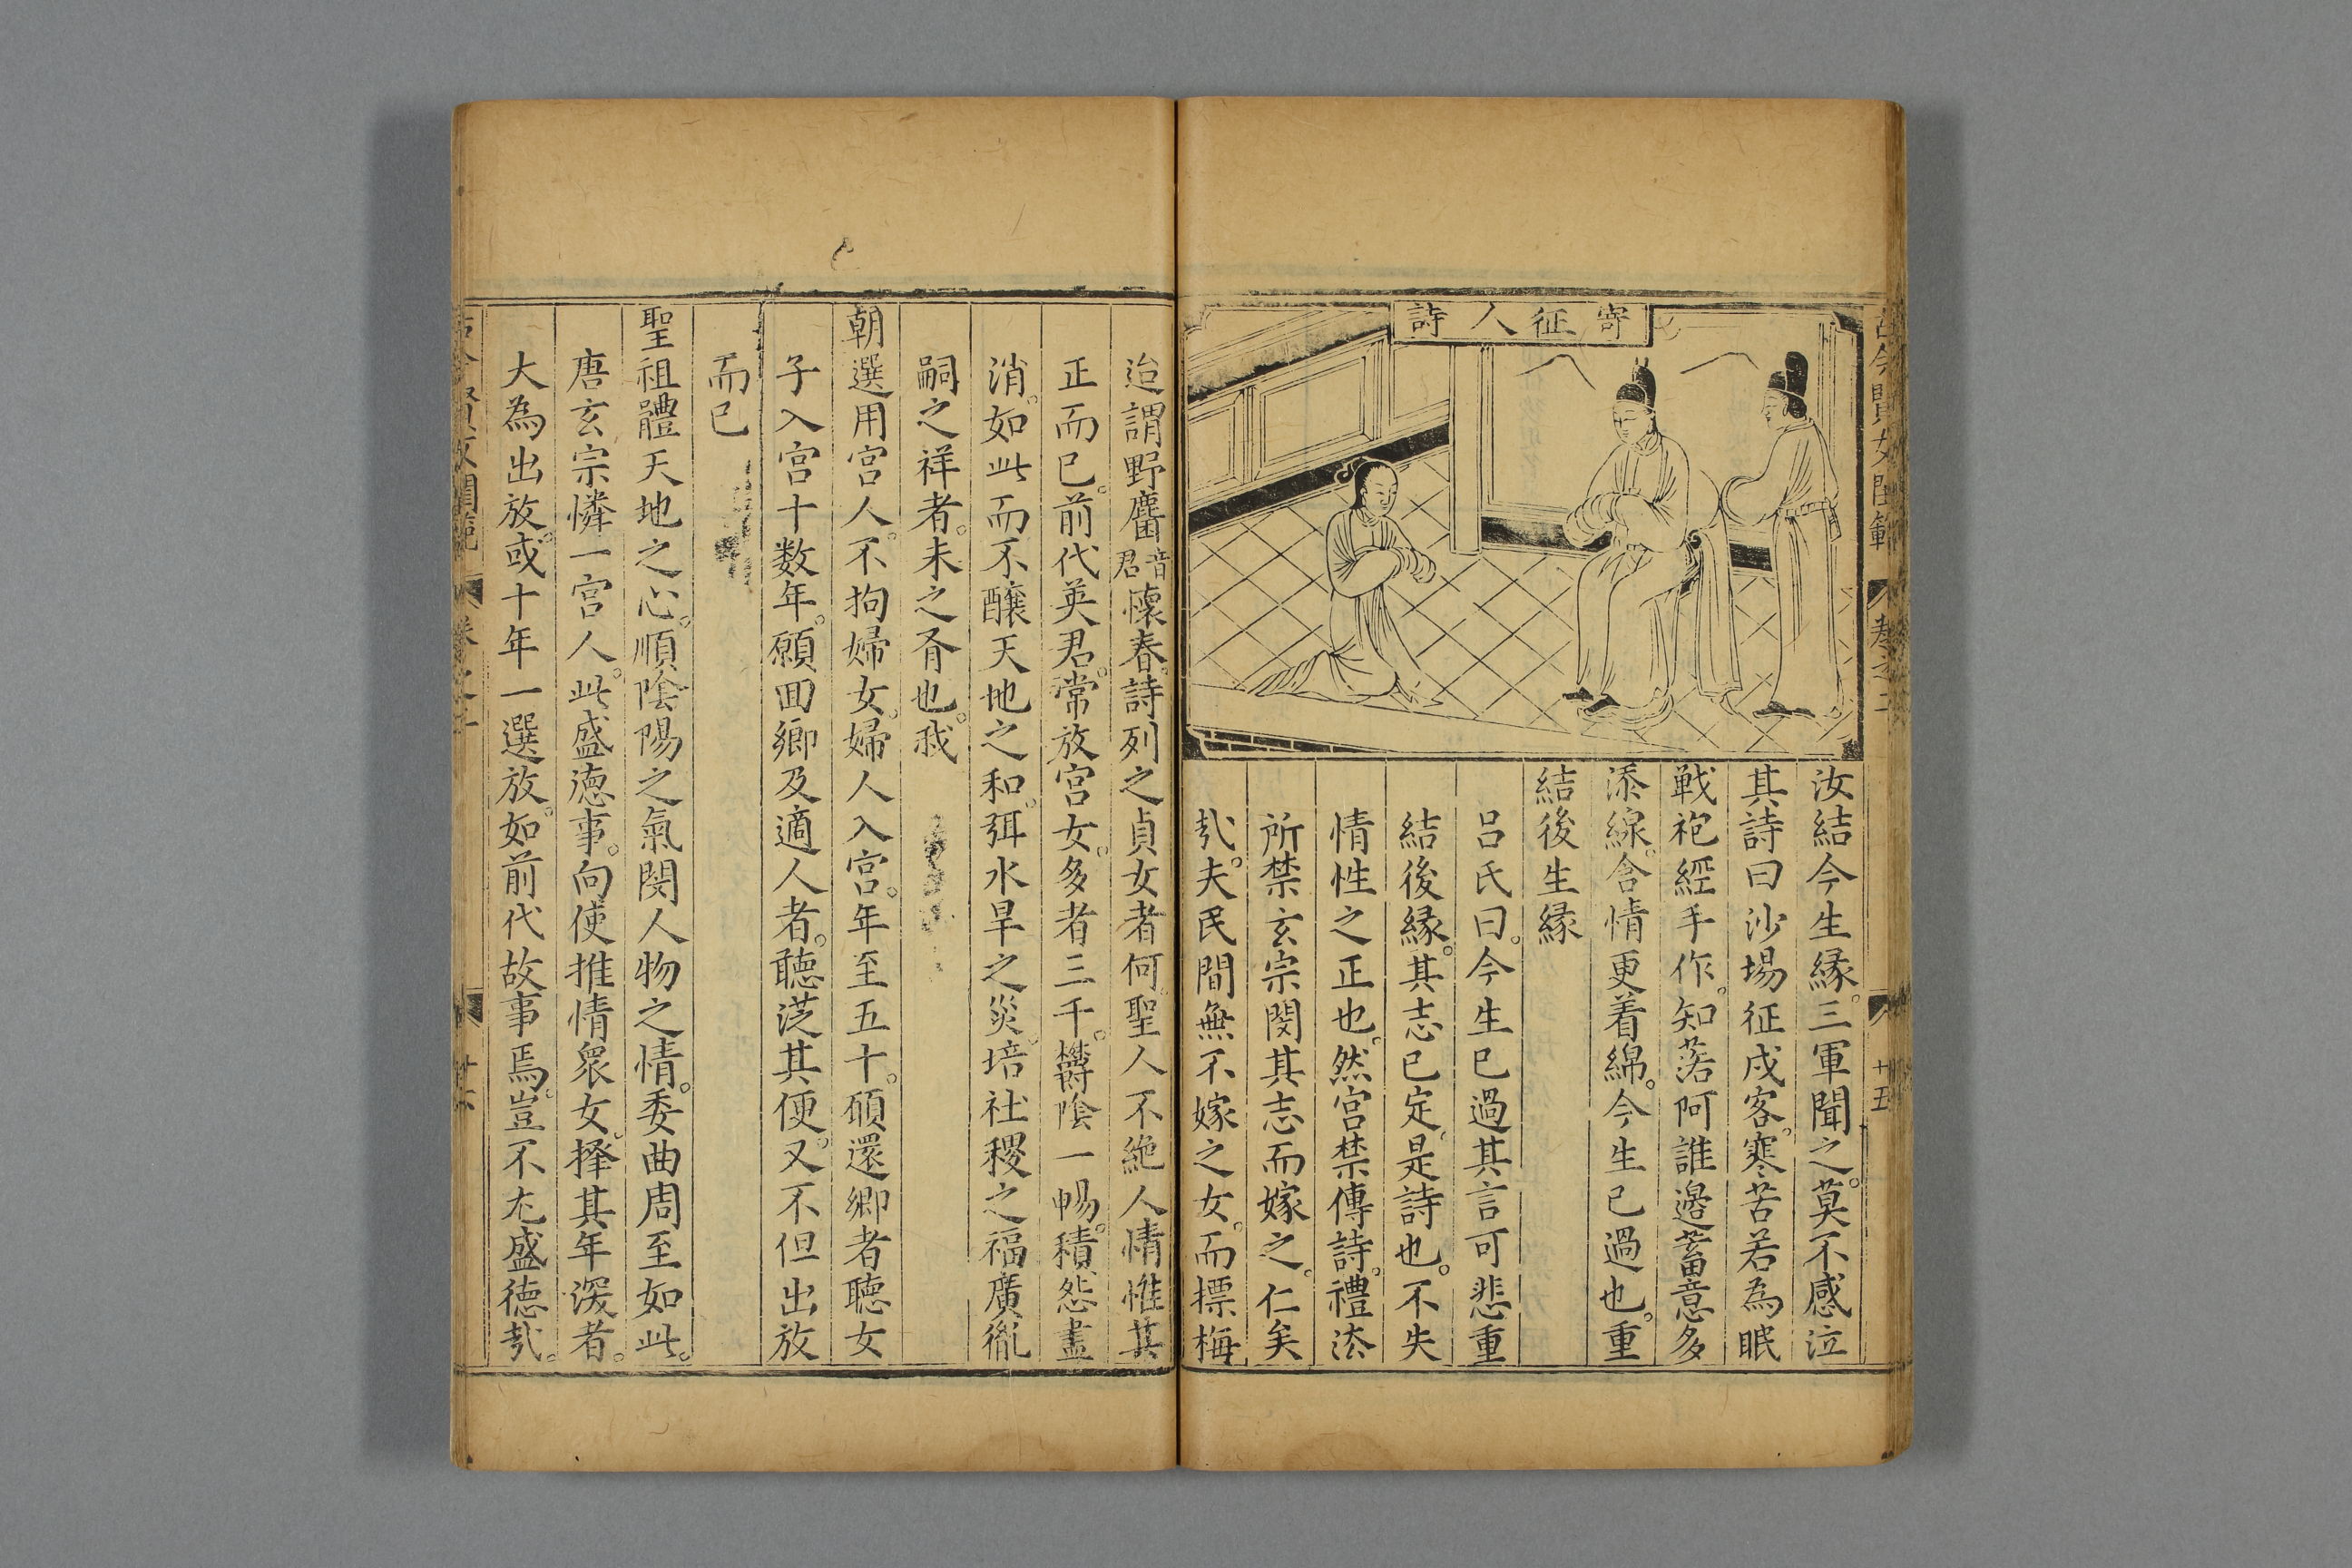 古今賢女閨範
卷之二
十五
寄征人詩
汝結今生縁。三軍聞之。莫不感泣
其詩曰沙場征戍客。寒苦若為眠
戦袍經手作。知落阿誰邊蓄意多
添線。含情更着綿。今生已過也。重
結後生縁
呂氏曰。今生已過其言可悲重
結後縁。其志已定。是詩也。不失
情性之正也。然宮禁傳詩。禮法
所禁玄宗閔其志而嫁之。仁矣
㢤。夫民間無不嫁之女。而摽梅
迨謂野麕音君懷春。詩列之貞女者何。聖人不絶人情惟其
正而已。前代英君。常放宮女。多者三千。欝陰一暢。積怨盡
消。如此而不釀天地之和。弭水旱之災。培社稷之福廣衍
嗣之祥者。未之有也。我
朝選用宮人。不拘婦女。婦人入宮。年至五十。願還鄉者聽女
子入宮十数年。願囬鄉及適人者。聽從其便。又不但出放
而已
聖祖體天地之心。順陰陽之氣閔人物之情。委曲周至如此。
唐玄宗憐一宮人。此盛德事。向使推情衆女。擇其年深者。
大為出放。或十年一選放。如前代故事焉。豈不尤盛德㢤。
古今賢女閨範
卷之二
十六